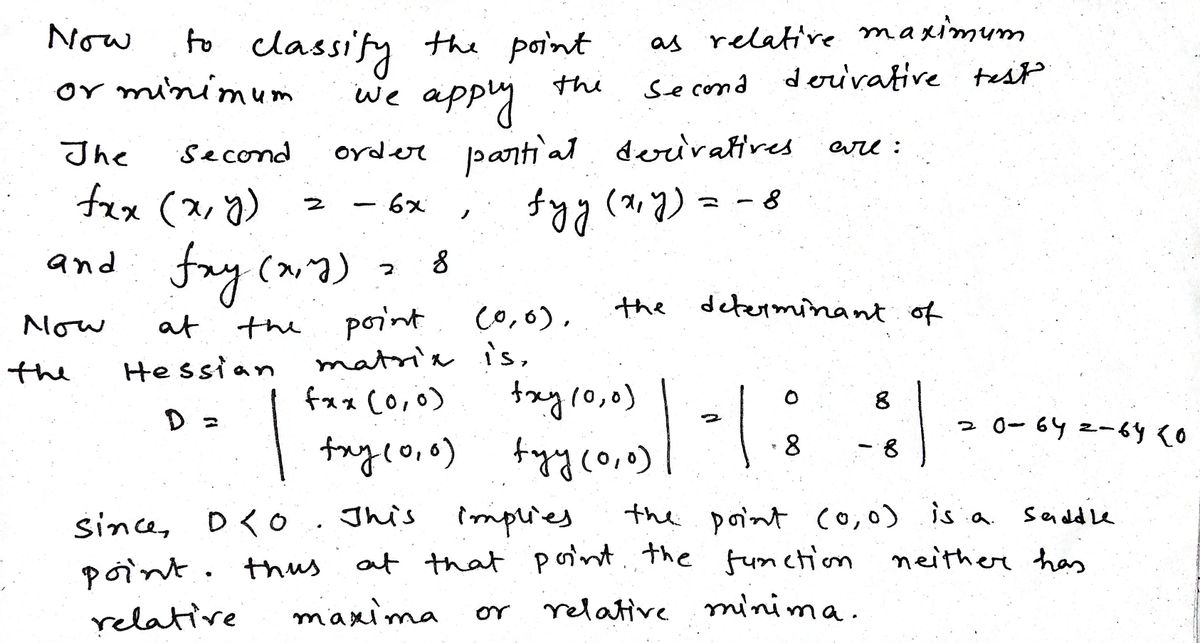 Now to classify the point as relative maximum
or minimum we apply the second derivative test
The second order partial derivatives are :
fxx (x, y) = - 6x , fyy (x, y) = - 8
and fxy (x, y) = 8
Now at the point (0, 0), the determinant of
the Hessian matrix is,
D = | fxx (0, 0) fxy (0, 0) | = | 0 8 | = 0 - 64 = - 64 < 0
| fxy (0, 0) fyy (0, 0) | | 8 - 8 |
since, D < 0 . This implies the point (0, 0) is a saddle
point . thus at that point, the function neither has
relative maxima or relative minima .